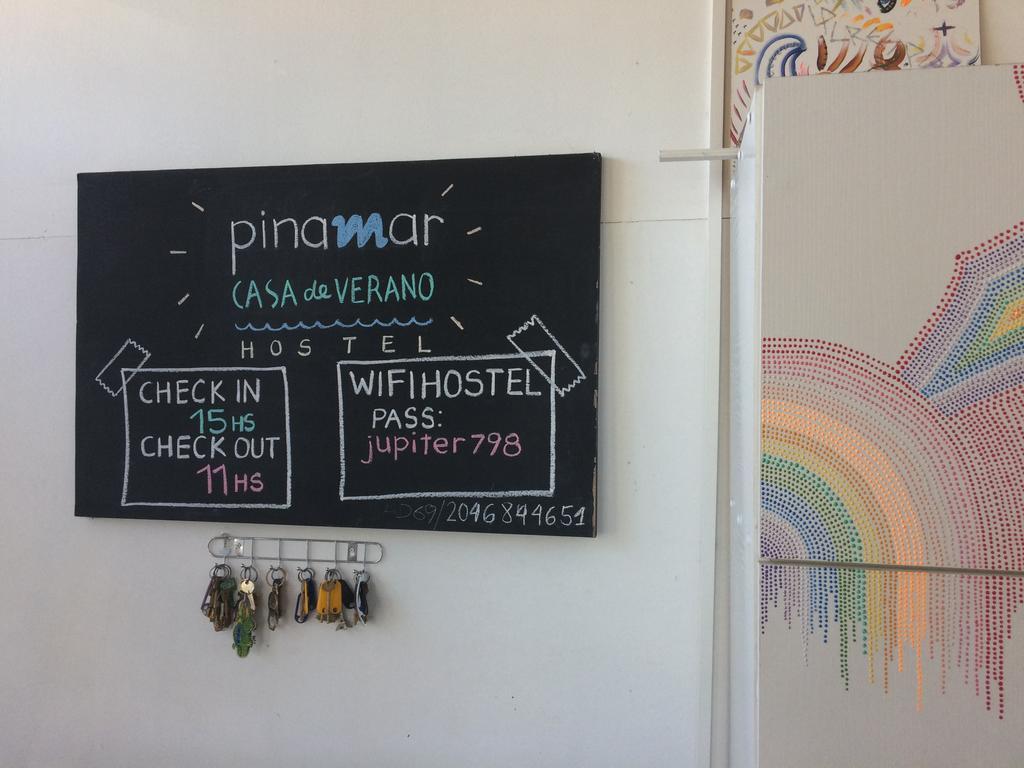 pinamar
CASA de VERANO
HOSTEL
CHECK IN
15HS
CHECK OUT
11HS
WIFIHOSTEL
PASS:
jupiter798
2046844651